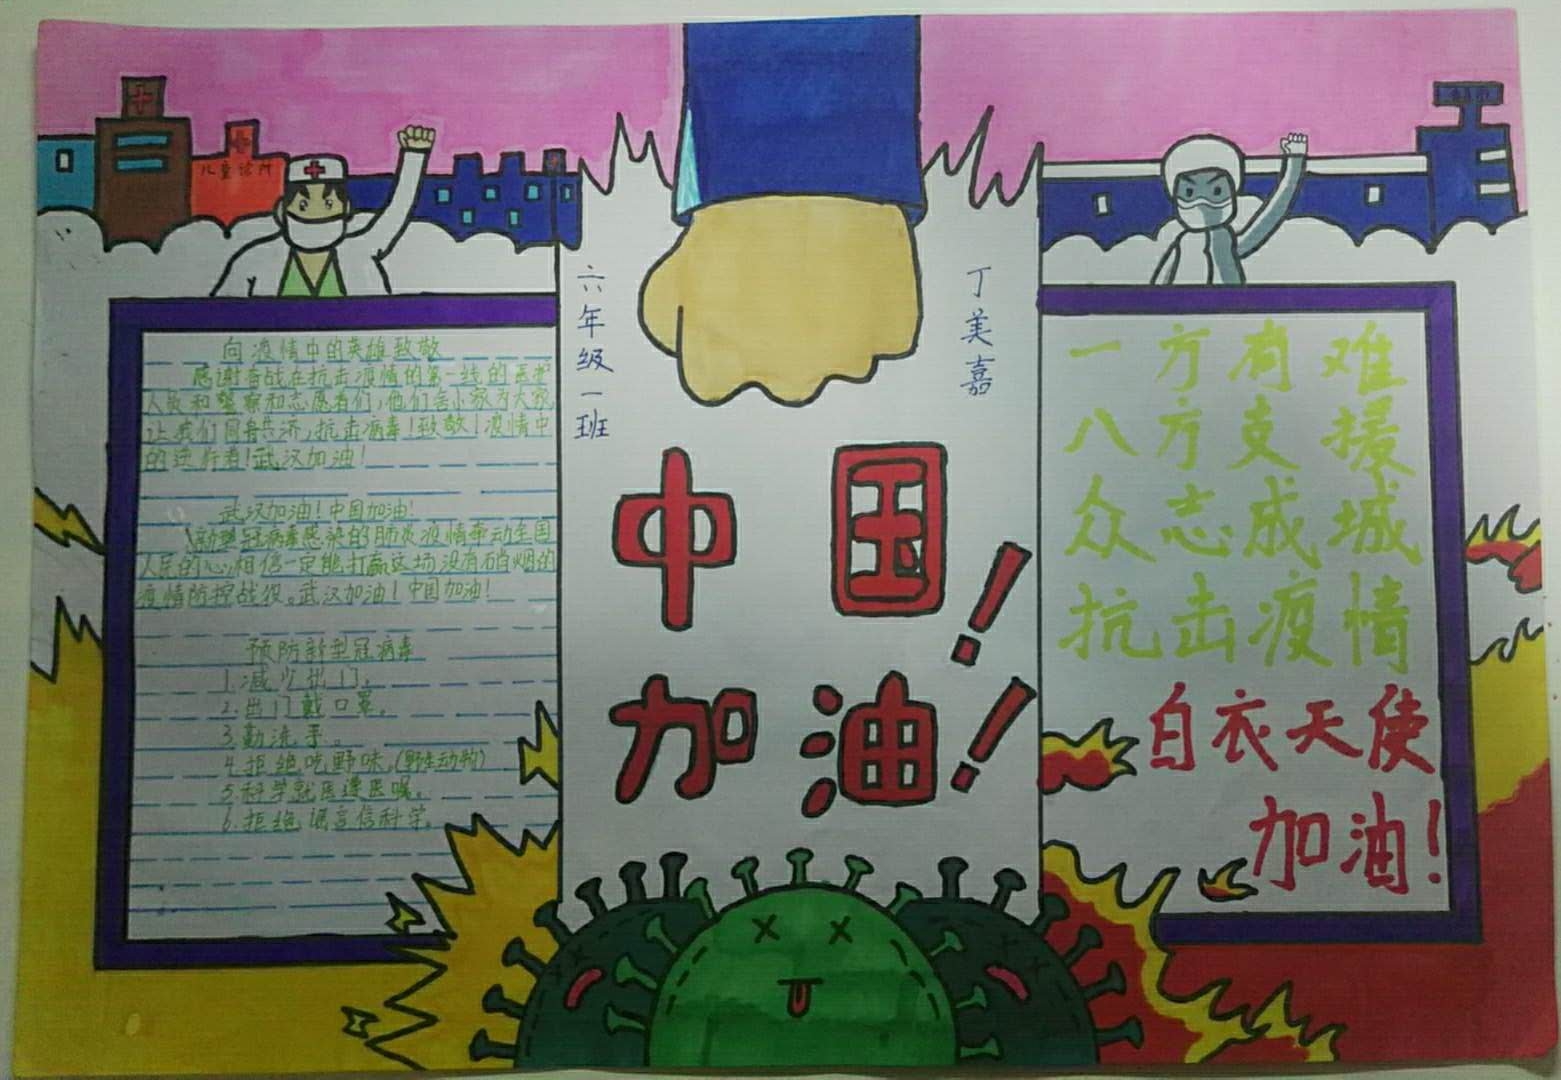 儿童诊所
六年级一班
丁美嘉
向疫情中的英雄致敬
感谢奋战在抗击疫情的第一线的医护
人员和警察和志愿者们,他们舍小家为大家,
让我们同舟共济,抗击病毒!致敬!疫情中
的逆行者!武汉加油!
武汉加油!中国加油!
新型冠病毒感染的肺炎疫情牵动全国
人民的心相信一定能打赢这场没有硝烟的
疫情防控战役。武汉加油!中国加油!
预防新型冠病毒
1.减少出门。
2.出门戴口罩。
3.勤洗手。
4.拒绝吃野味。(野生动物)
5.科学就医遵医嘱。
6.拒绝谣言信科学。
中国!
加油!
一方有难
八方支援
众志成城
抗击疫情
白衣天使
加油!